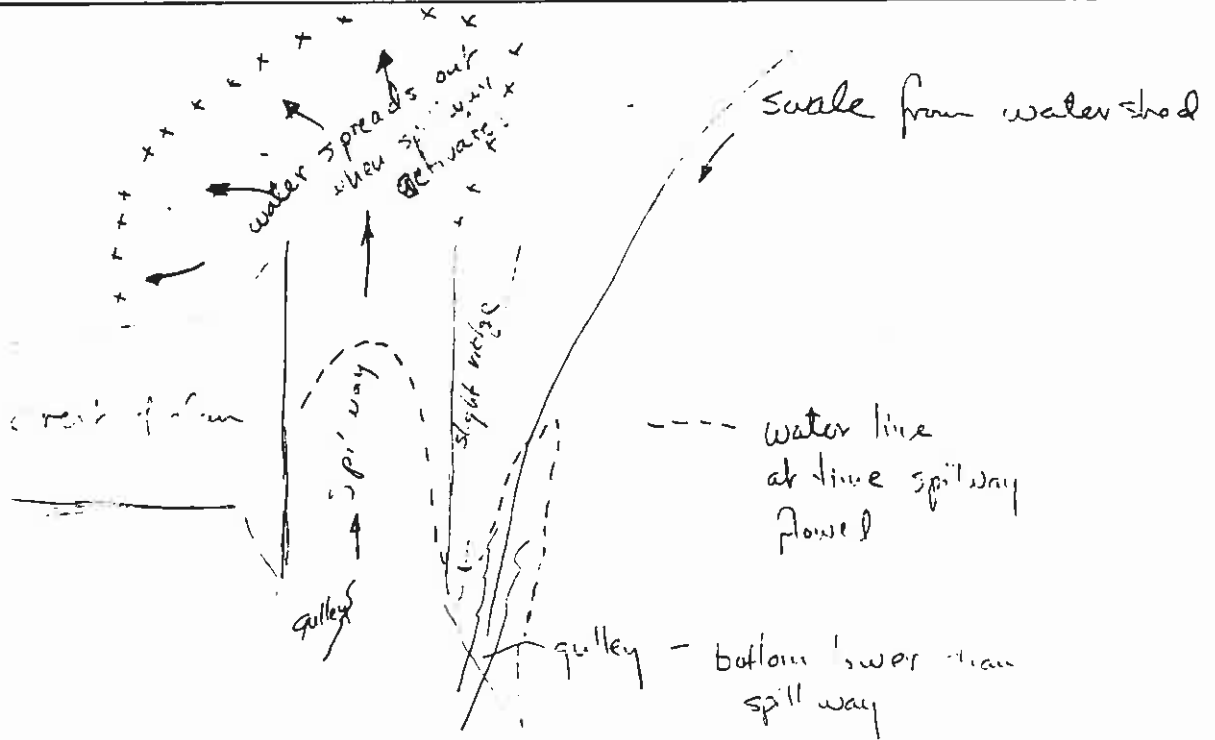 water spreads out
when spillway
activates
swale from watershed
slight ridge
spillway
crest of dam
---- water line
at time spillway
flowed
gulley
gulley - bottom lower than
spillway